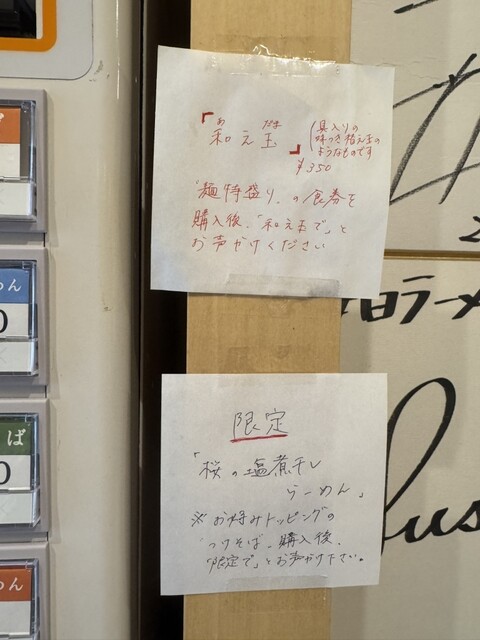 「和え玉」
あ だま
(具入りの
味つき替え玉の
ようなものです
¥350
「麺特盛り」の食券を
購入後、「和え玉で」と
お声がけください
限定
「桜の塩煮干し
らーめん」
※お好みトッピングの
「つけそば」購入後、
「限定で」とお声がけ下さい。
めん
0
ば
0
めん
ラーメ